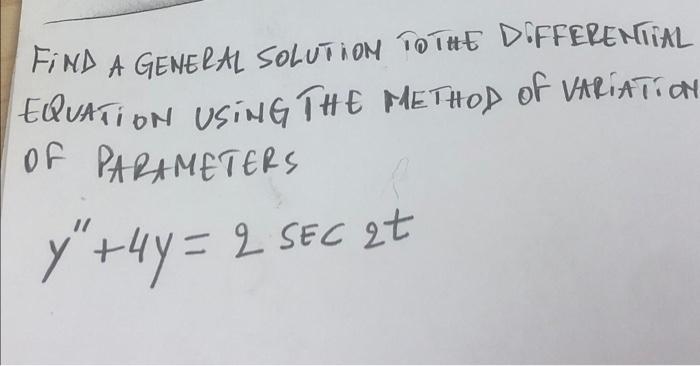 FIND A GENERAL SOLUTION TO THE DIFFERENTIAL
EQUATION USING THE METHOD OF VARIATION
OF PARAMETERS
y"+4y= 2 SEC 2t